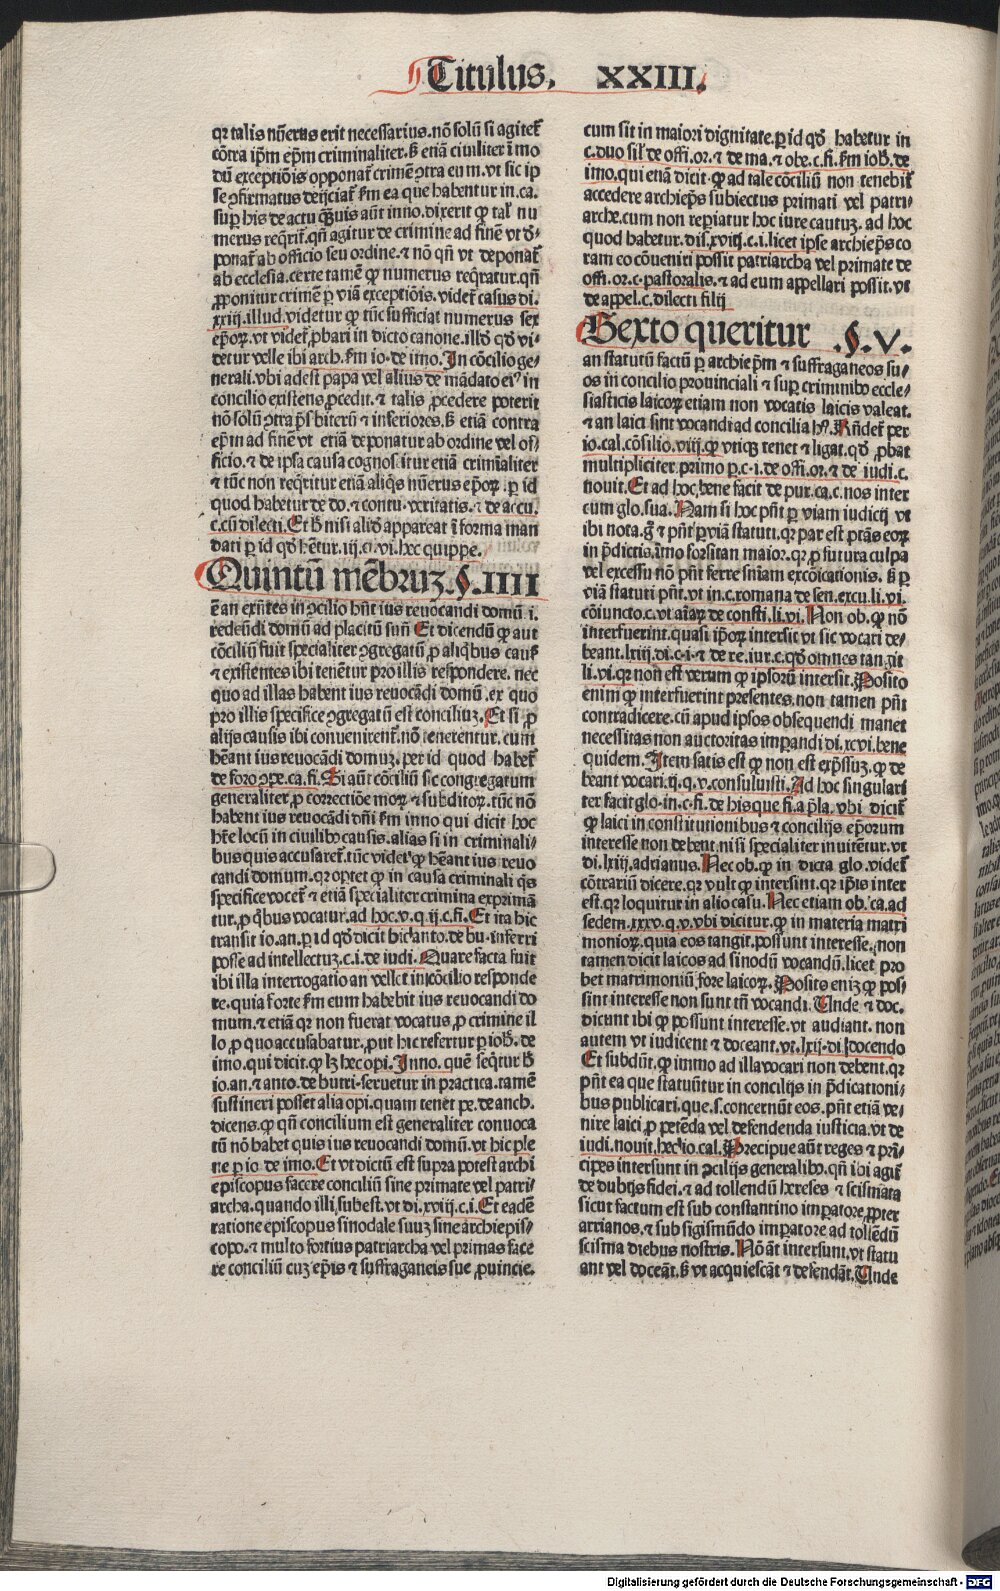 Titulus. XXIII.
qr talis nũerus erit necessarius.nõ solũ si agitet̃
cõtra ip̃m ep̃m criminaliter.s̃ etiã ciuiliter ĩ mo
dũ exceptiõis opponat̃ crimẽ ꝯtra eum.vt sic ip
se ꝯfirmatus deijciat̃ f̃m ea que habentur in.ca.
sup̱ his de actu q̃uis aũt inno.dixerit ꝙ tal̃ nu
merus req̃rit̃.qñ agitur de crimine ad finẽ vt d̃-
ponat̃ ab officio seu ordine.⁊ nõ qñ vt deponat̃
ab ecclesia.certe tamẽ ꝙ numerus req̃ratur.qñ
ꝓponitur crimẽ ꝑ viã exceptiõis.videt̃ casus di.
xxiij.illud.videtur ꝙ tũc sufficiat numerus sex
ep̃oꝝ.vt videt̃ ꝓbari in dicto canone.illd̃ qd̃ vi-
detur velle ibi arch.f̃m io.de imo.In cõcilio ge-
nerali.vbi adest papa vel alius de mãdato ei⁹ in
concilio existens ꝓcedit.⁊ talis ꝓcedere poterit
nõ solũ ꝯtra p̃sbiterũ ⁊ inferiores.s̃ etiã contra
ep̃m ad finẽ vt etiã deponatur ab ordine vel of-
ficio.⁊ de ipsa causa cognoscitur etiã crimĩaliter
⁊ tũc non req̃ritur etiã aliq̃s nũerus ep̃oꝝ.ꝑ id
quod habetur de do.⁊ contu.veritatis.⁊ de accu.
c.cũ dilecti.Et h̃ nisi aliđ appareat ĩ forma man
dati ꝑ id qđ hẽtur.iij.q.vi.hec quippe.
Quintũ mẽbruz.§.IIII
ẽ an exñtes in ꝯcilio hñt ius reuocandi domũ.i.
redeũdi domũ ad placitũ suũ Et dicendũ ꝙ aut
cõciliũ fuit specialiter ꝯgregatũ ꝓ aliq̃bus caus̃
⁊ existentes ibi tenẽtur pro illis respondere.nec
quo ad illas habent ius reuocãdi domũ.ex quo
pro illis specifice ꝯgregatũ est conciliuz.Et si ꝓ
alijs causis ibi conuenirent̃.nõ tenerentur.cum
hẽant ius reuocãdi domuz.per id quod habet̃
de foro ꝯpe.ca.fi.Si aũt cõciliũ sic congregatum
generaliter,ꝓ correctiõe moꝝ ⁊ subditoꝝ.tũc nõ
habent ius reuocãdi dñi f̃m inno qui dicit hoc
hr̃e locũ in ciuilib⁹ causis.alias si in criminali-
bus quis accusaret̃.tũc videt̃ ꝙ hẽant ius reuo
candi domium.qr optet ꝙ in causa criminali q̃s
specifice vocet̃ ⁊ etiã specialiter crimina exprimã
tur,ꝓ q̃bus vocatur.ad hoc.v.q.ij.c.fi.Et ita hic
transit io.an.ꝑ id qđ dicit hic anto.de bu.inferri
posse ad intellectuz.c.i.de iudi.Quare facta fuit
ibi illa interrogatio an vellet in cõcilio responde
re.quia forte f̃m eum habebit ius reuocandi do
mum.⁊ etiã qr non fuerat vocatus,ꝓ crimine il
lo ꝓ quo accusabatur.ꝓut hic refertur ꝑ ioh̃.de
imo.qui dicit.ꝙ lꝫ hec opi.Inno.quẽ seq̃tur h̃
io.an.⁊ anto.de butri.seruetur in practica.tamẽ
sustineri posset alia opi.quam tenet pe.de anch.
dicens.ꝙ qñ concilium est generaliter conuoca
tũ nõ habet quis ius reuocandi domũ.vt hic ple
ne ꝑ io de imo.Et vt dictũ est supra potest archi
episcopus facere conciliũ sine primate vel patri-
archa.quando illi subest.vt di.xviij.c.i.Et eadẽ
ratione episcopus sinodale suuz sine archiepis-
copo.⁊ multo fortius patriarcha vel primas face
re conciliũ cuz ep̃is ⁊ suffraganeis sue ꝓuincie.
cum sit in maiori dignitate.ꝑ id qđ habetur in
c.duo sil̃ de offi.or.⁊ de ma.⁊ obe.c.fi.f̃m ioh̃.de
imo.qui etiã dicit.ꝙ ad tale cõciliũ non tenebit̃
accedere archiep̃s subiectus primati vel patri-
arche.cum non reperiatur hoc iure cautuz.ad hoc
quod habetur.dis.xviij.c.i.licet ipse archiep̃s co
ram eo cõueniri possit patriarcha vel primate de
offi.or.c.pastoralis.⁊ ad eum appellari possit.vt
de appel.c.dilecti filij
Sexto queritur .§.V.
an statutũ factũ ꝑ archiep̃m ⁊ suffraganeos su-
os in concilio prouinciali ⁊ sup̱ criminib⁹ eccle-
siasticis laicoꝝ etiam non vocatis laicis valeat.
⁊ an laici sint vocandi ad concilia h⁹.Rñdet̃ per
io.cal.cõsilio.viij.ꝙ vtiqꝫ tenet ⁊ ligat.qđ ꝓbat
multipliciter.primo p.c.i.de offi.or.⁊ de iudi.c.
nouit.Et ad hoc bene facit de pur.ca.c.nos inter
cum glo.sua.Nam si hoc pñt ꝑ viam iudicij vt
ibi nota.g̃ ⁊ pñt ꝑ viã statuti.qr par est ptãs eoꝝ
in p̃dictis.ĩmo forsitan maior.qr ꝓ futura culpa
vel excessu nõ pñt ferre sniam excõicationis.s̃ ꝑ
viã statuti pñt.vt in.c.romana de sen.excu.li.vi.
cõiuncto.c.vt aĩaꝝ de consti.li.vi.Non ob.ꝙ nõ
interfuerint.quasi ip̃oꝝ intersit vt sic vocari de-
beant.lxiij.di.c.i.⁊ de re.iur.c.qđ omnes tangit
li.vi.qr non est verum ꝙ ipsorũ intersit.Posito
enim ꝙ interfuerint presentes.non tamen pñt
contradicere.cũ apud ipsos obsequendi manet
necessitas non auctoritas imꝑandi di.xcvi.bene
quidem.Item satis est ꝙ non est exp̃ssuz.ꝙ de
beant vocari.ij.q.v.consuluisti.Ad hoc singulari
ter facit glo.in.c.fi.de his que fi.a p̃la.vbi dicit̃
ꝙ laici in constitutionibus ⁊ concilijs ep̃orum
interesse non debent.nisi specialiter inuitẽtur.vt
di.lxiij.adrianus.Nec ob.ꝙ in dicta glo.videt̃
cõtrariũ dicere.qr vult ꝙ intersint.qr ip̃is inter
est.qr loquitur in alio casu.Nec etiam ob.ca.ad
sedem.xxxv.q.v.vbi dicitur.ꝙ in materia matri
monioꝝ.quia eos tangit.possunt interesse.non
tamen dicit laicos ad sinodũ vocandũ.licet pro
bet matrimoniũ fore laicoꝝ.Posito enĩz ꝙ pos-
sint interesse non sunt tñ vocandi.Unde ⁊ doc.
dicunt ibi ꝙ possunt interesse.vt audiant.non
autem vt iudicent ⁊ doceant.vt.lxij.di.docendo
Et subdũt.ꝙ immo ad illa vocari non debent.qr
pñt ea que statuũtur in concilijs in p̃dicationi-
bus publicari.que.s.concernũt eos.pñt etiã ve-
nire laici ꝓ petẽda vel defendenda iusticia.vt de
iudi.nouit.hec io.cal.Precipue aũt reges ⁊ prĩ-
cipes intersunt in ꝯcilijs generalib⁹.qñ ibi agit̃
de dubijs fidei.⁊ ad tollendũ hereses ⁊ scismata
sicut factum est sub constantino imꝑatore,ꝓpter
arrianos.⁊ sub sigismũdo imꝑatore ad tollẽdũ
scisma diebus nostris.Nõ aũt intersunt.vt statu
ant vel doceãt.s̃ vt acquiescãt ⁊ defendãt.Unde
Digitalisierung gefördert durch die Deutsche Forschungsgemeinschaft - DFG